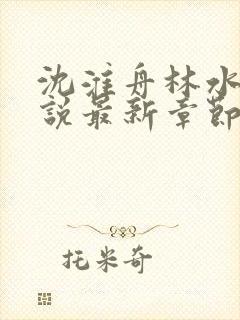 沈淮舟林水
說最新章節
托米奇